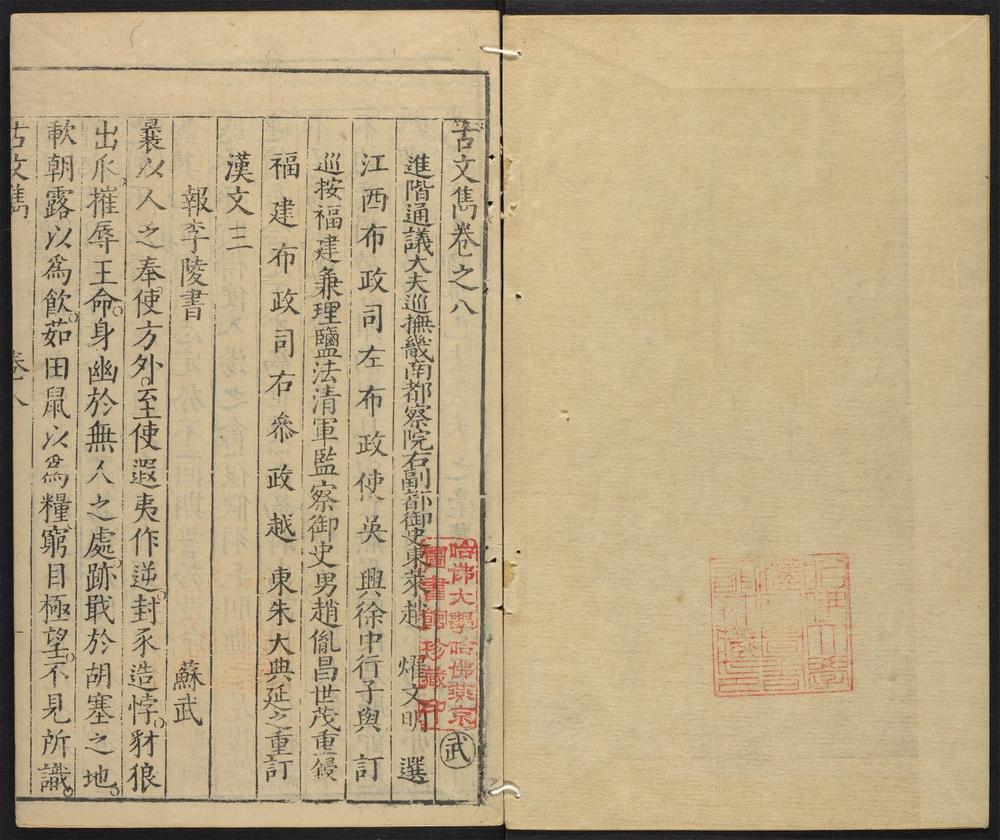 古文雋卷之八 武
進階通議大夫巡撫畿南都察院右副都御史東萊趙 燿文明 選
江西布政司左布政使吳 興徐中行子與 訂
巡按福建兼理鹽法清軍監察御史男趙胤昌世茂重鋟
福建布政司右叅政越 東朱大典延之重訂
漢文三
報李陵書 蘇武
曩以人之奉使方外至使遐夷作逆封豕造悖豺狼
出爪摧辱王命身幽於無人之處跡戢於胡塞之地
歃朝露以爲飲茹田鼠以爲糧窮目極望不見所識
古文雋 卷八
哈佛大學哈佛燕京
圖書館珍藏印